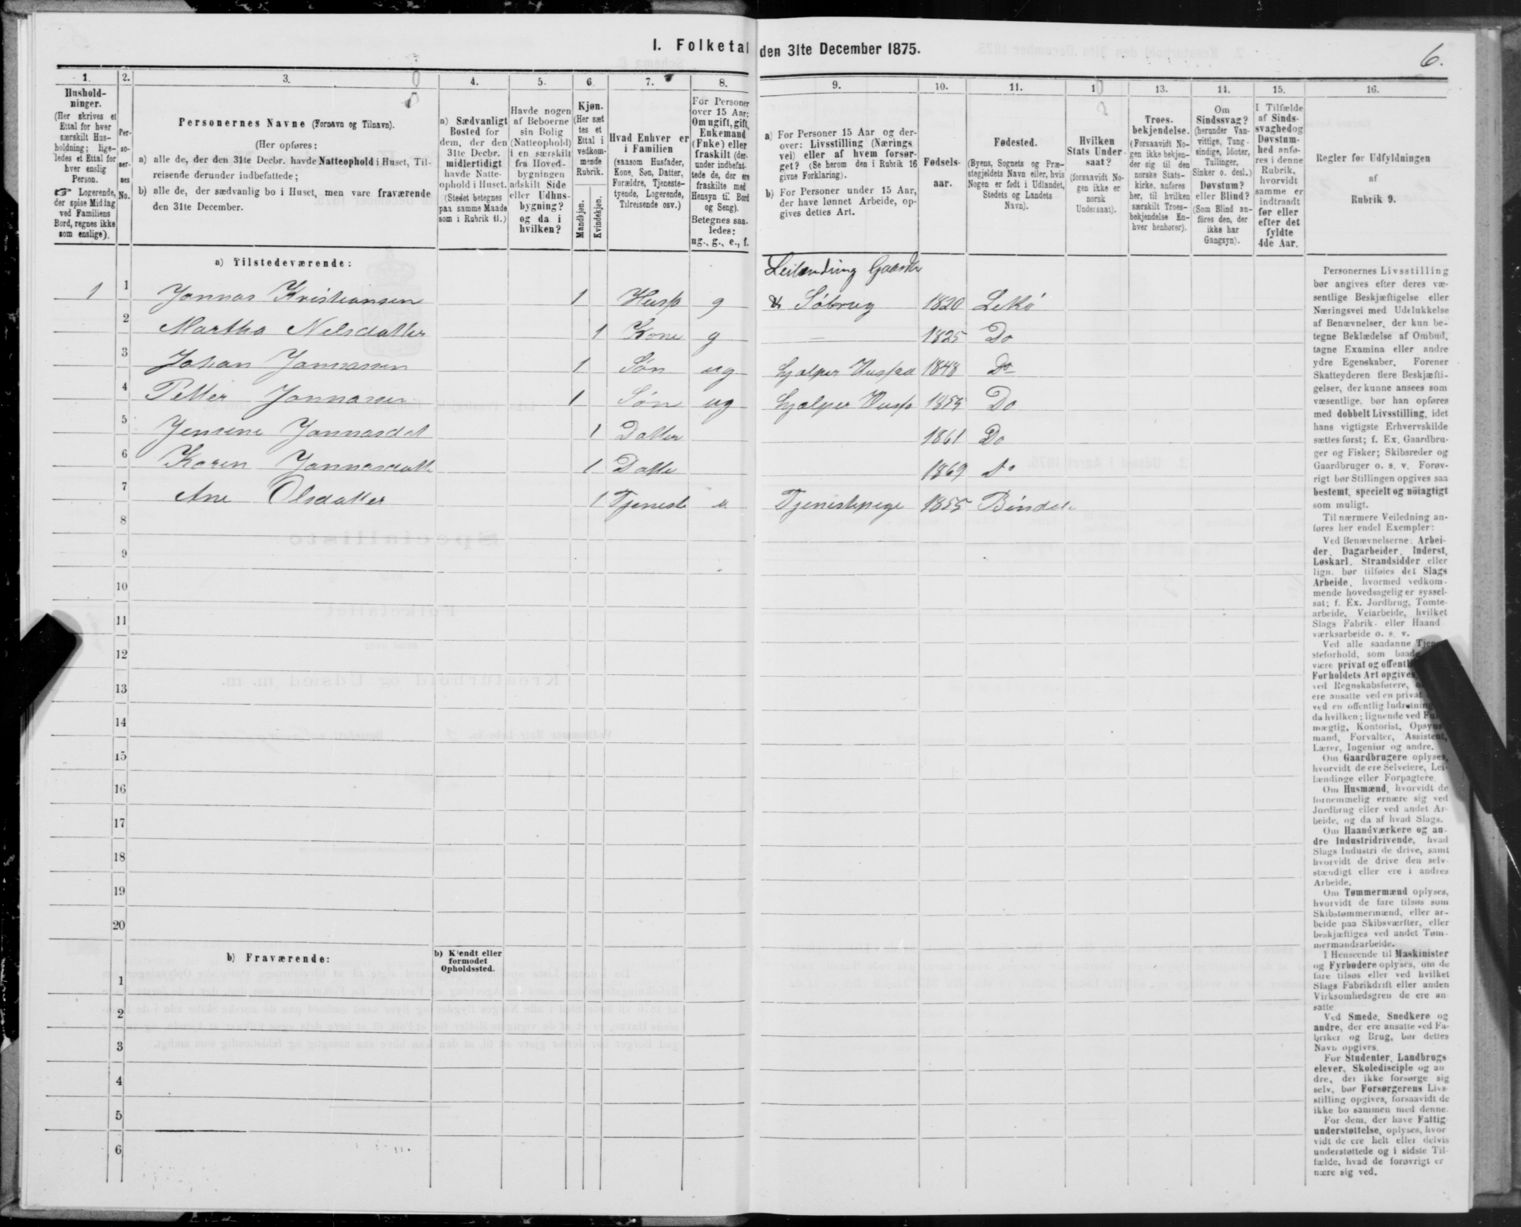 I. Folketal den 31te December 1875.
6.
1.
Husholdninger.
(Her skrives et Ettal for hver særskilt Husholdning; ligeledes et Ettal for hver enslig Person.
☞ Logerende, der spise Middag ved Familiens Bord, regnes ikke som enslige).
2.
Personernes No.
3.
Personernes Navne (Fornavn og Tilnavn).
(Her opføres:
a) alle de, der den 31te Decbr. havde Natteophold i Huset, Tilreisende derunder indbefattede;
b) alle de, der sædvanlig bo i Huset, men vare fraværende den 31te December.
4.
a) Sædvanligt Bosted for dem, der den 31te Decbr. midlertidigt havde Natteophold i Huset.
(Stedet betegnes paa samme Maade som i Rubrik 11.)
5.
Havde nogen af Beboerne sin Bolig (Natteophold) i en særskilt fra Hovedbygningen adskilt Side eller Udhusbygning? og da i hvilken?
6.
Kjøn.
(Her sættes et Ettal i vedkommende Rubrik.
Mandkjøn.
Kvindekjøn.
7.
Hvad Enhver er i Familien
(saasom Husfader, Kone, Søn, Datter, Forældre, Tjenestetyende, Logerende, Tilreisende osv.)
8.
For Personer over 15 Aar: Om ugift, gift, Enkemand (Enke) eller fraskilt (derunder indbefattede de, der ere fraskilte med Hensyn til Bord og Seng).
Betegnes saaledes: ug., g., e., f.
9.
a) For Personer 15 Aar og derover: Livsstilling (Næringsvei) eller af hvem forsørget? (Se herom den i Rubrik 16 givne Forklaring).
b) For Personer under 15 Aar, der have lønnet Arbeide, opgives dettes Art.
10.
Fødselsaar.
11.
Fødested.
(Byens, Sognets og Præstegjeldets Navn eller, hvis Nogen er født i Udlandet, Stedets og Landets Navn).
Hvilken Stats Undersaat?
(forsaavidt Nogen ikke er norsk Undersaat).
13.
Troesbekjendelse.
(Forsaavidt Nogen ikke bekjender sig til den norske Statskirke, anføres her, til hvilken særskilt Troesbekjendelse Enhver henhører).
14.
Om Sindssvag? (herunder Vanvittige, Tungsindige, Idioter, Tullinger, Sinker o. desl.)
Døvstum? eller Blind? (Som Blind anføres den, der ikke har Gangsyn).
15.
I Tilfælde af Sindssvaghed og Døvstumhed anføres i denne Rubrik, hvorvidt samme er indtraadt før eller efter det fyldte 4de Aar.
16.
Regler før Udfyldningen
af
Rubrik 9.
a) Tilstedeværende:
Leilænding Gaardb
1 1 Jonnas Kristiansen 1 Husf g & Søbrug 1820 Lekø
2 Martha Nelsdatter 1 Kone g – 1825 Do
3 Johan Jonnasen 1 Søn ug hjælper Husfad 1848 Do
4 Petter Jonnasen 1 Søn ug hjælper Husf 1855 Do
5 Jensine Jonnasdat 1 Datter 1861 Do
6 Karen Jonnasdatt 1 Datte 1869 Do
7 Ane Olsdatter 1 Tjeneste u. Tjenistepige 1855 Bindal
8
9
10
11
12
13
14
15
16
17
18
19
20
b) Fraværende:
b) Kjendt eller formodet Opholdssted.
1
2
3
4
5
6
Personernes Livsstilling bør angives efter deres væsentlige Beskjæftigelse eller Næringsvei med Udelukkelse af Benævnelser, der kun betegne Beklædelse af Ombud, tagne Examina eller andre ydre Egenskaber. Forener Skatteyderen flere Beskjæftigelser, der kunne ansees som væsentlige, bør han opføres med dobbelt Livsstilling, idet hans vigtigste Erhvervskilde sættes først; f. Ex. Gaardbruger og Fisker; Skibsreder og Gaardbruger o. s. v. Forøvrigt bør Stillingen opgives saa bestemt, specielt og nøiagtigt som muligt.
Til nærmere Veiledning anføres her endel Exempler:
Ved Benævnelserne: Arbeider, Dagarbeider, Inderst, Løskarl, Strandsidder eller lign. bør tilføies det Slags Arbeide, hvormed vedkommende hovedsagelig er sysselsat; f. Ex. Jordbrug, Tomtearbeide, Veiarbeide, hvilket Slags Fabrik- eller Haandværksarbeide o. s. v.
Ved alle saadanne Tjenesteforhold, som baade være privat og offentl Forholdets Art opgives, ved Regnskabsførere, ere ansatte ved en privat ved en offentlig Indretning da hvilken; lignende ved mægtig, Kontorist, Opsynsmand, Forvalter, Assistent, Lærer, Ingeniør og andre.
Om Gaardbrugere oplyses, hvorvidt de ere Selveiere, Leilændinge eller Forpagtere.
Om Husmænd, hvorvidt de fornemmelig ernære sig ved Jordbrug eller ved andet Arbeide, og da af hvad Slags.
Om Haandværkere og andre Industridrivende, hvad Slags Industri de drive, samt hvorvidt de drive den selvstændigt eller ere i andres Arbeide.
Om Tømmermænd oplyses, hvorvidt de fare tilsøs som Skibstømmermænd, eller arbeide paa Skibsværfter, eller beskjæftiges ved andet Tømmermandsarbeide.
I Henseende til Maskinister og Fyrbødere oplyses, om de fare tilsøs eller ved hvilket Slags Fabrikdrift eller anden Virksomhedsgren de ere ansatte
Ved Smede, Snedkere og andre, der ere ansatte ved Fabriker og Brug, bør dettes Navn opgives.
For Studenter, Landbrugselever, Skoledisciple og andre, der ikke forsørge sig selv, bør Forsørgerens Livsstilling opgives, forsaavidt de ikke bo sammen med denne.
For dem, der have Fattigunderstøttelse, oplyses, hvorvidt de ere helt eller delvis understøttede og i sidste Tilfælde, hvad de forøvrigt ernære sig ved.